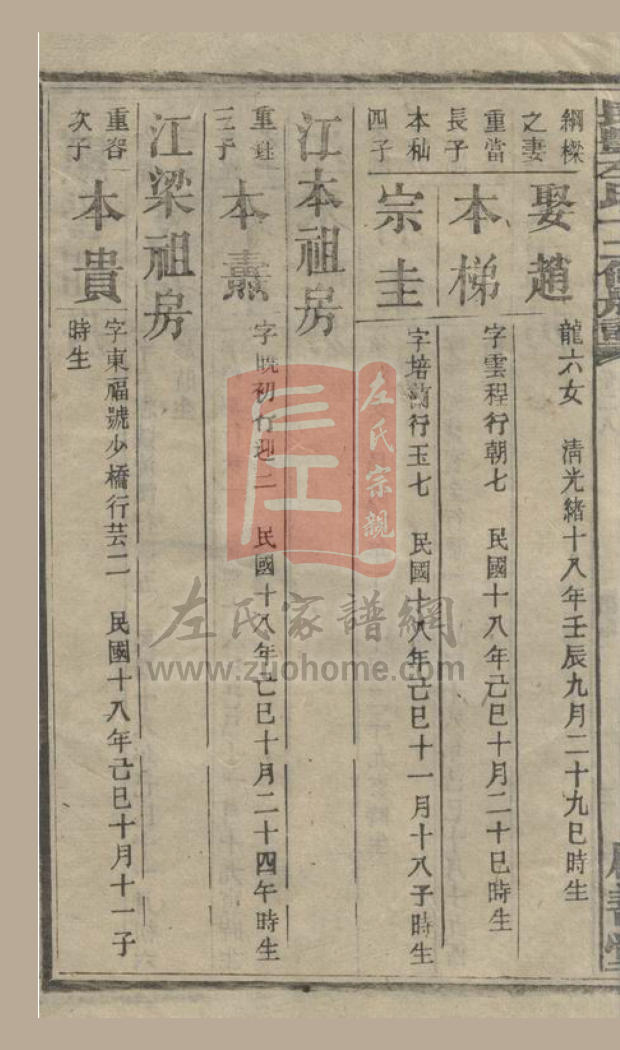 綱樑
之妻
娶趙
龍六女 清光緒十八年壬辰九月二十九巳時生
重當
長子
本梯
字雲程行朝七 民國十八年己巳十月二十巳時生
本秈
四子
宗圭
字培蘭行玉七 民國十八年己巳十一月十八子時生
江本祖房
三子
本燾
字曉初行迎二 民國十八年己巳十月二十四午時生
江梁祖房
重容
次子
本貴
字東福號少橋行芸二 民國十八年己巳十月十一子
時生
左氏宗親
左氏家譜網
www.zuohome.com